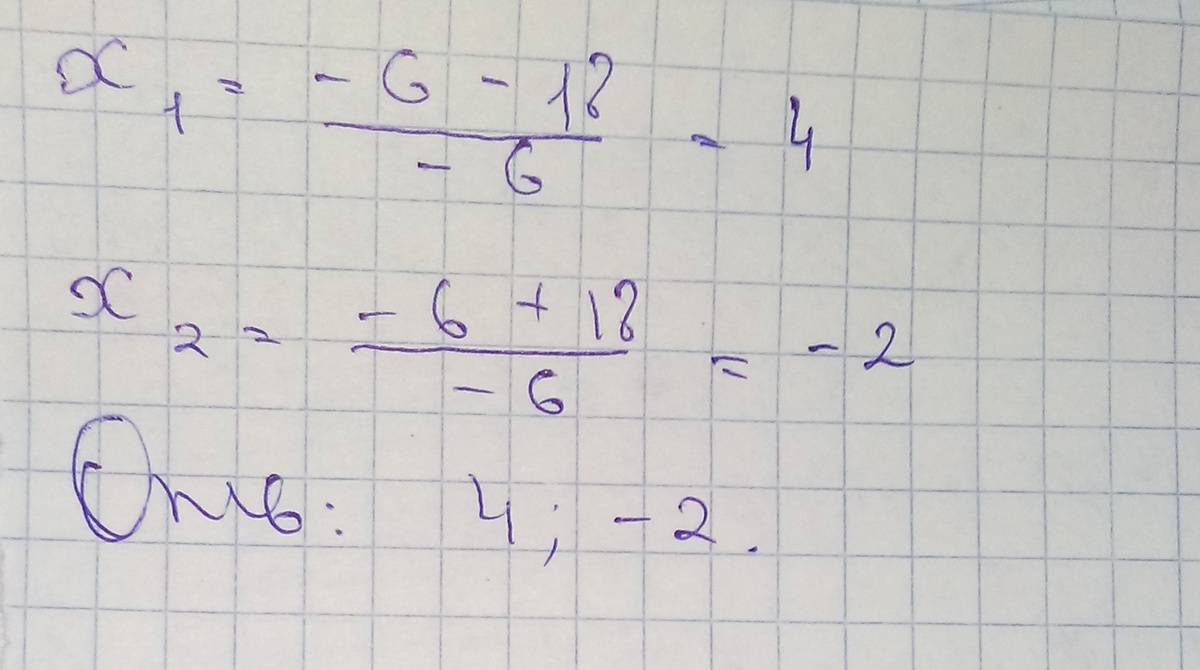 x₁ = (-6 - 18)/(-6) = 4
x₂ = (-6 + 18)/(-6) = -2
Отв: 4; -2.